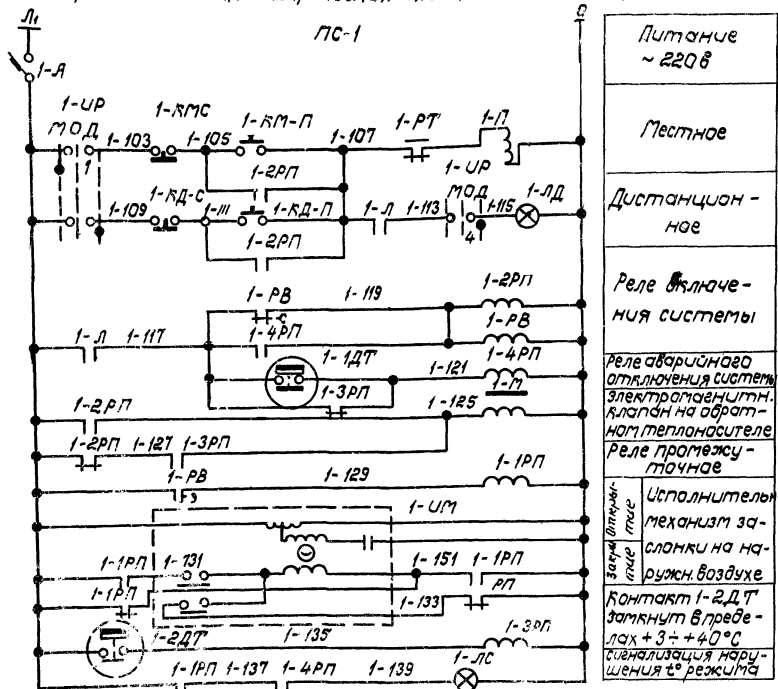 Л1
ПС-1
0
1-А
1-ИР
МОД
1
1-103
1-КМС
1-105
1-КМ-П
1-107
1-РТ
1-П
1-2РП
1-ИР
МОД
4
1-109
1-КД-С
1-111
1-КД-П
1-Л
1-113
1-115
1-ЛД
1-2РП
1-РВ
1-119
1-2РП
1-Л
1-117
1-4РП
1-РВ
1-1ДТ
1-121
1-4РП
1-3РП
1-М
1-2РП
1-125
1-2РП
1-127
1-3РП
1-РВ
1-129
1-1РП
1-ИМ
1-1РП
1-131
1-151
1-1РП
1-1РП
1-133
РП
1-2ДТ
1-135
1-3РП
1-1РП
1-137
1-4РП
1-139
1-ЛС
Питание
~ 220в
Местное
Дистанцион-
ное
Реле включе-
ния системы
Реле аварийного
отключения системы
Электромагнитн.
клапан на обрат-
ном теплоносителе
Реле промежу-
точное
Откры-
тие
Закры-
тие
Исполнительн
механизм за-
слонки на на-
ружн. воздухе
Контакт 1-2ДТ
замкнут в преде-
лах +3÷+40°С
сигнализация нару-
шения t° режима